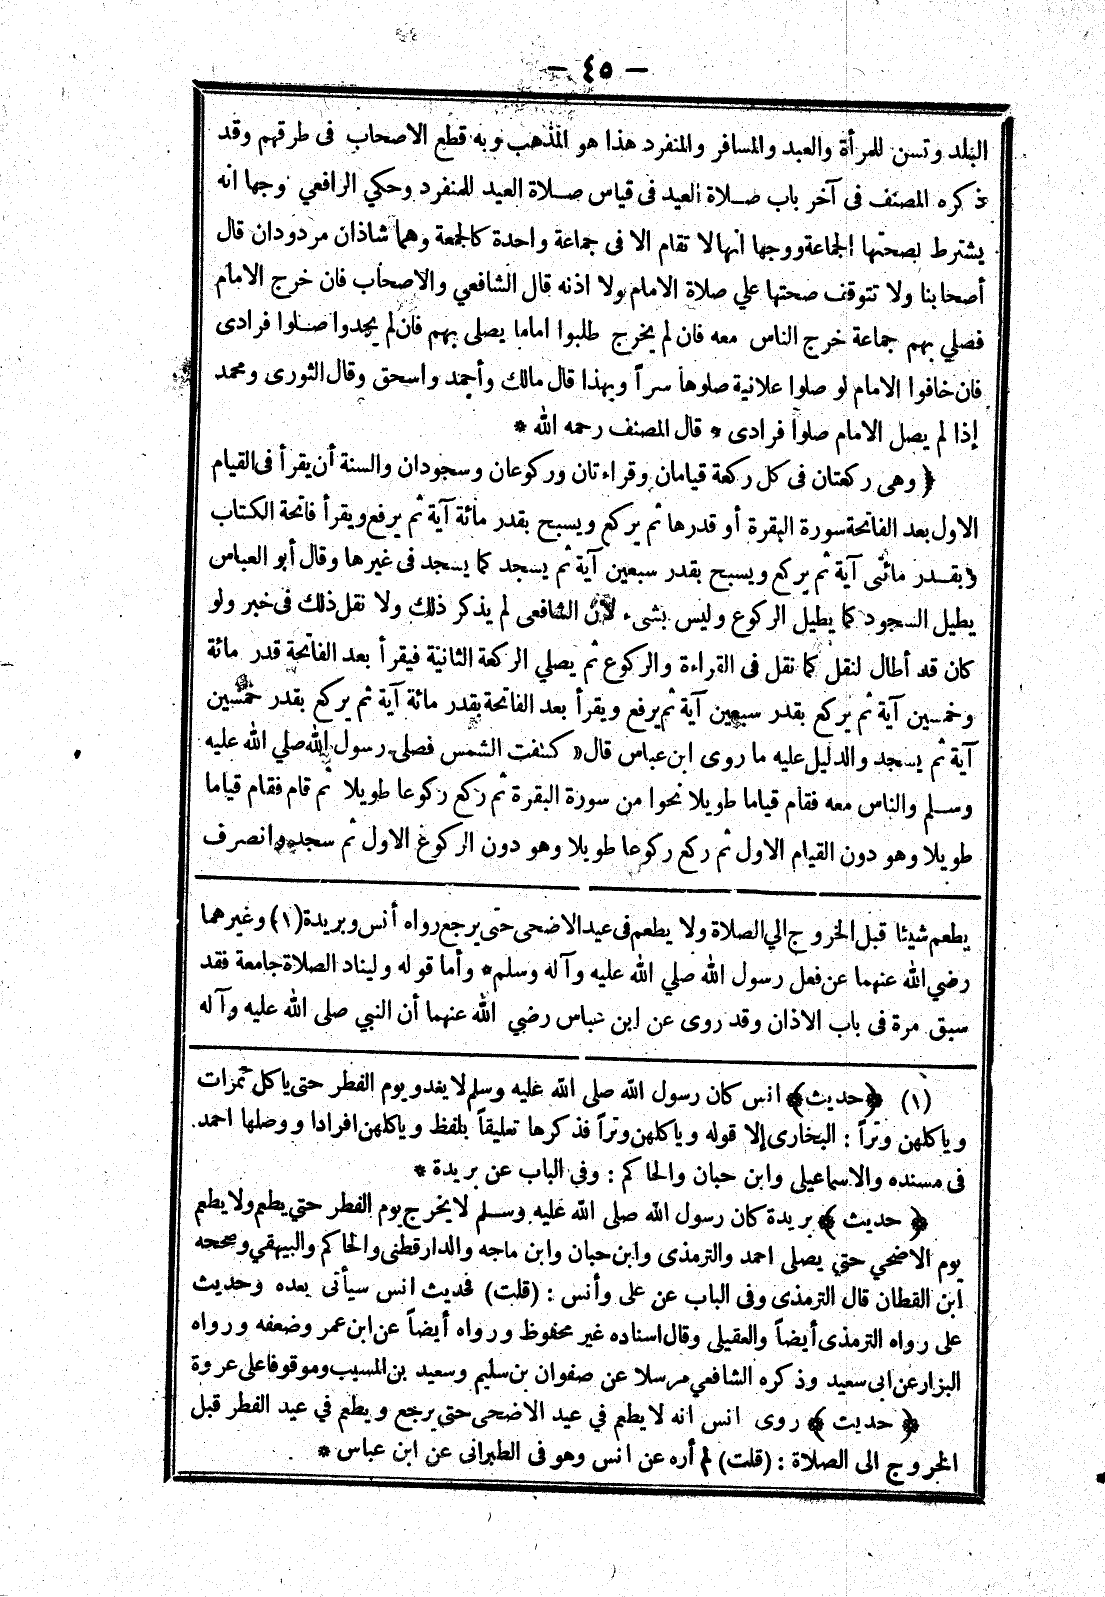 — ٤٥ —
البلد وتسن للمرأة والعبد والمسافر والمنفرد هذا هو المذهب وبه قطع الاصحاب فى طرقهم وقد
ذكره المصنف فى آخر باب صلاة العيد فى قياس صلاة العيد للمنفرد وحكي الرافعي وجها انه
يشترط لصحتها الجماعة ووجها انها لا تقام الا فى جماعة واحدة كالجمعة وهما شاذان مردودان قال
أصحابنا ولا تتوقف صحتها علي صلاة الامام ولا اذنه قال الشافعي والاصحاب فان خرج الامام
فصلي بهم جماعة خرج الناس معه فان لم يخرج طلبوا اماما يصلى بهم فان لم يجدوا صلوا فرادى
فان خافوا الامام لو صلوا علانية صلوها سراً وبهذا قال مالك وأحمد واسحق وقال الثورى ومحمد
إذا لم يصل الامام صلوا فرادى * قال المصنف رحمه الله *
﴿ وهى ركعتان فى كل ركعة قيامان وقراءتان وركوعان وسجودان والسنة أن يقرأ فى القيام
الاول بعد الفاتحة سورة البقرة أو قدرها ثم يركع ويسبح بقدر مائة آية ثم يرفع ويقرأ فاتحة الكتاب
وبقدر مائتى آية ثم يركع ويسبح بقدر سبعين آية ثم يسجد كما يسجد فى غيرها وقال أبو العباس
يطيل السجود كما يطيل الركوع وليس بشىء لأن الشافعى لم يذكر ذلك ولا نقل ذلك فى خبر ولو
كان قد أطال لنقل كما نقل فى القراءة والركوع ثم يصلي الركعة الثانية فيقرأ بعد الفاتحة قدر مائة
وخمسين آية ثم يركع بقدر سبعين آية ثم يرفع ويقرأ بعد الفاتحة بقدر مائة آية ثم يركع بقدر خمسين
آية ثم يسجد والدليل عليه ما روى ابن عباس قال « كسفت الشمس فصلى رسول الله صلي الله عليه
وسلم والناس معه فقام قياما طويلا نحوا من سورة البقرة ثم ركع ركوعا طويلا ثم قام فقام قياما
طويلا وهو دون القيام الاول ثم ركع ركوعا طويلا وهو دون الركوع الاول ثم سجد وانصرف
يطعم شيئا قبل الخروج الي الصلاة ولا يطعم فى عيد الاضحى حتى يرجع رواه أنس وبريدة (١) وغيرهما
رضي الله عنهما عن فعل رسول الله صلي الله عليه وآله وسلم * وأما قوله ولیناد الصلاة جامعة فقد
سبق مرة فى باب الاذان وقد روى عن ابن عباس رضي الله عنهما أن النبي صلى الله عليه وآله
(١) ﴿حديث﴾ انس كان رسول الله صلى الله عليه وسلم لا يغدو يوم الفطر حتى ياكل تمرات
وياكلهن وتراً : البخارى إلا قوله وياكلهن وتراً فذكرها تعليقاً بلفظ وياكلهن افرادا ووصلها احمد
فى مسنده والاسماعيلى وابن حبان والحاكم : وفي الباب عن بريدة *
﴿ حديث ﴾ بريدة كان رسول الله صلى الله عليه وسلم لا يخرج يوم الفطر حتي يطعم ولا يطعم
يوم الاضحي حتي يصلى احمد والترمذى وابن حبان وابن ماجه والدارقطنى والحاكم والبيهقي وصححه
ابن القطان قال الترمذى وفى الباب عن على وأنس : (قلت) فحديث انس سيأتى بعده وحديث
على رواه الترمذى أيضاً والعقيلى وقال اسناده غير محفوظ ورواه أيضاً عن ابن عمر وضعفه ورواه
البزار عن ابى سعيد وذكره الشافعي مرسلا عن صفوان بن سليم وسعيد بن المسيب وموقوفا على عروة
﴿ حديث ﴾ روى انس انه لا يطعم في عيد الاضحى حتي يرجع ويطعم في عيد الفطر قبل
الخروج الى الصلاة : (قلت) لم أره عن انس وهو فى الطبرانى عن ابن عباس *